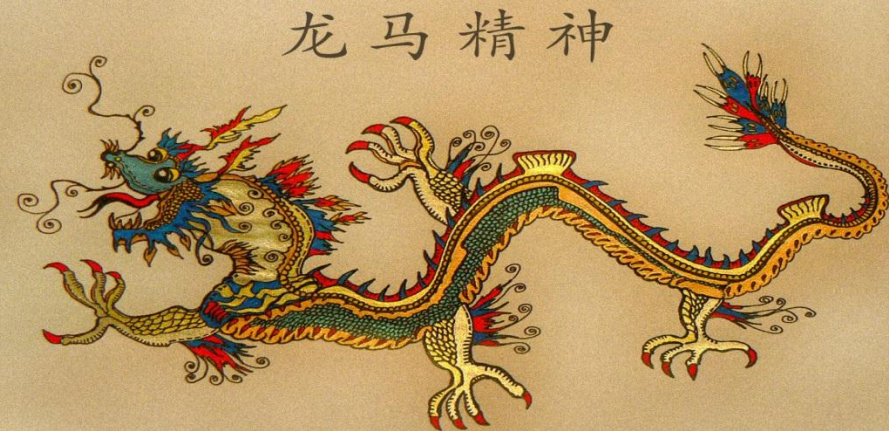 龙马精神